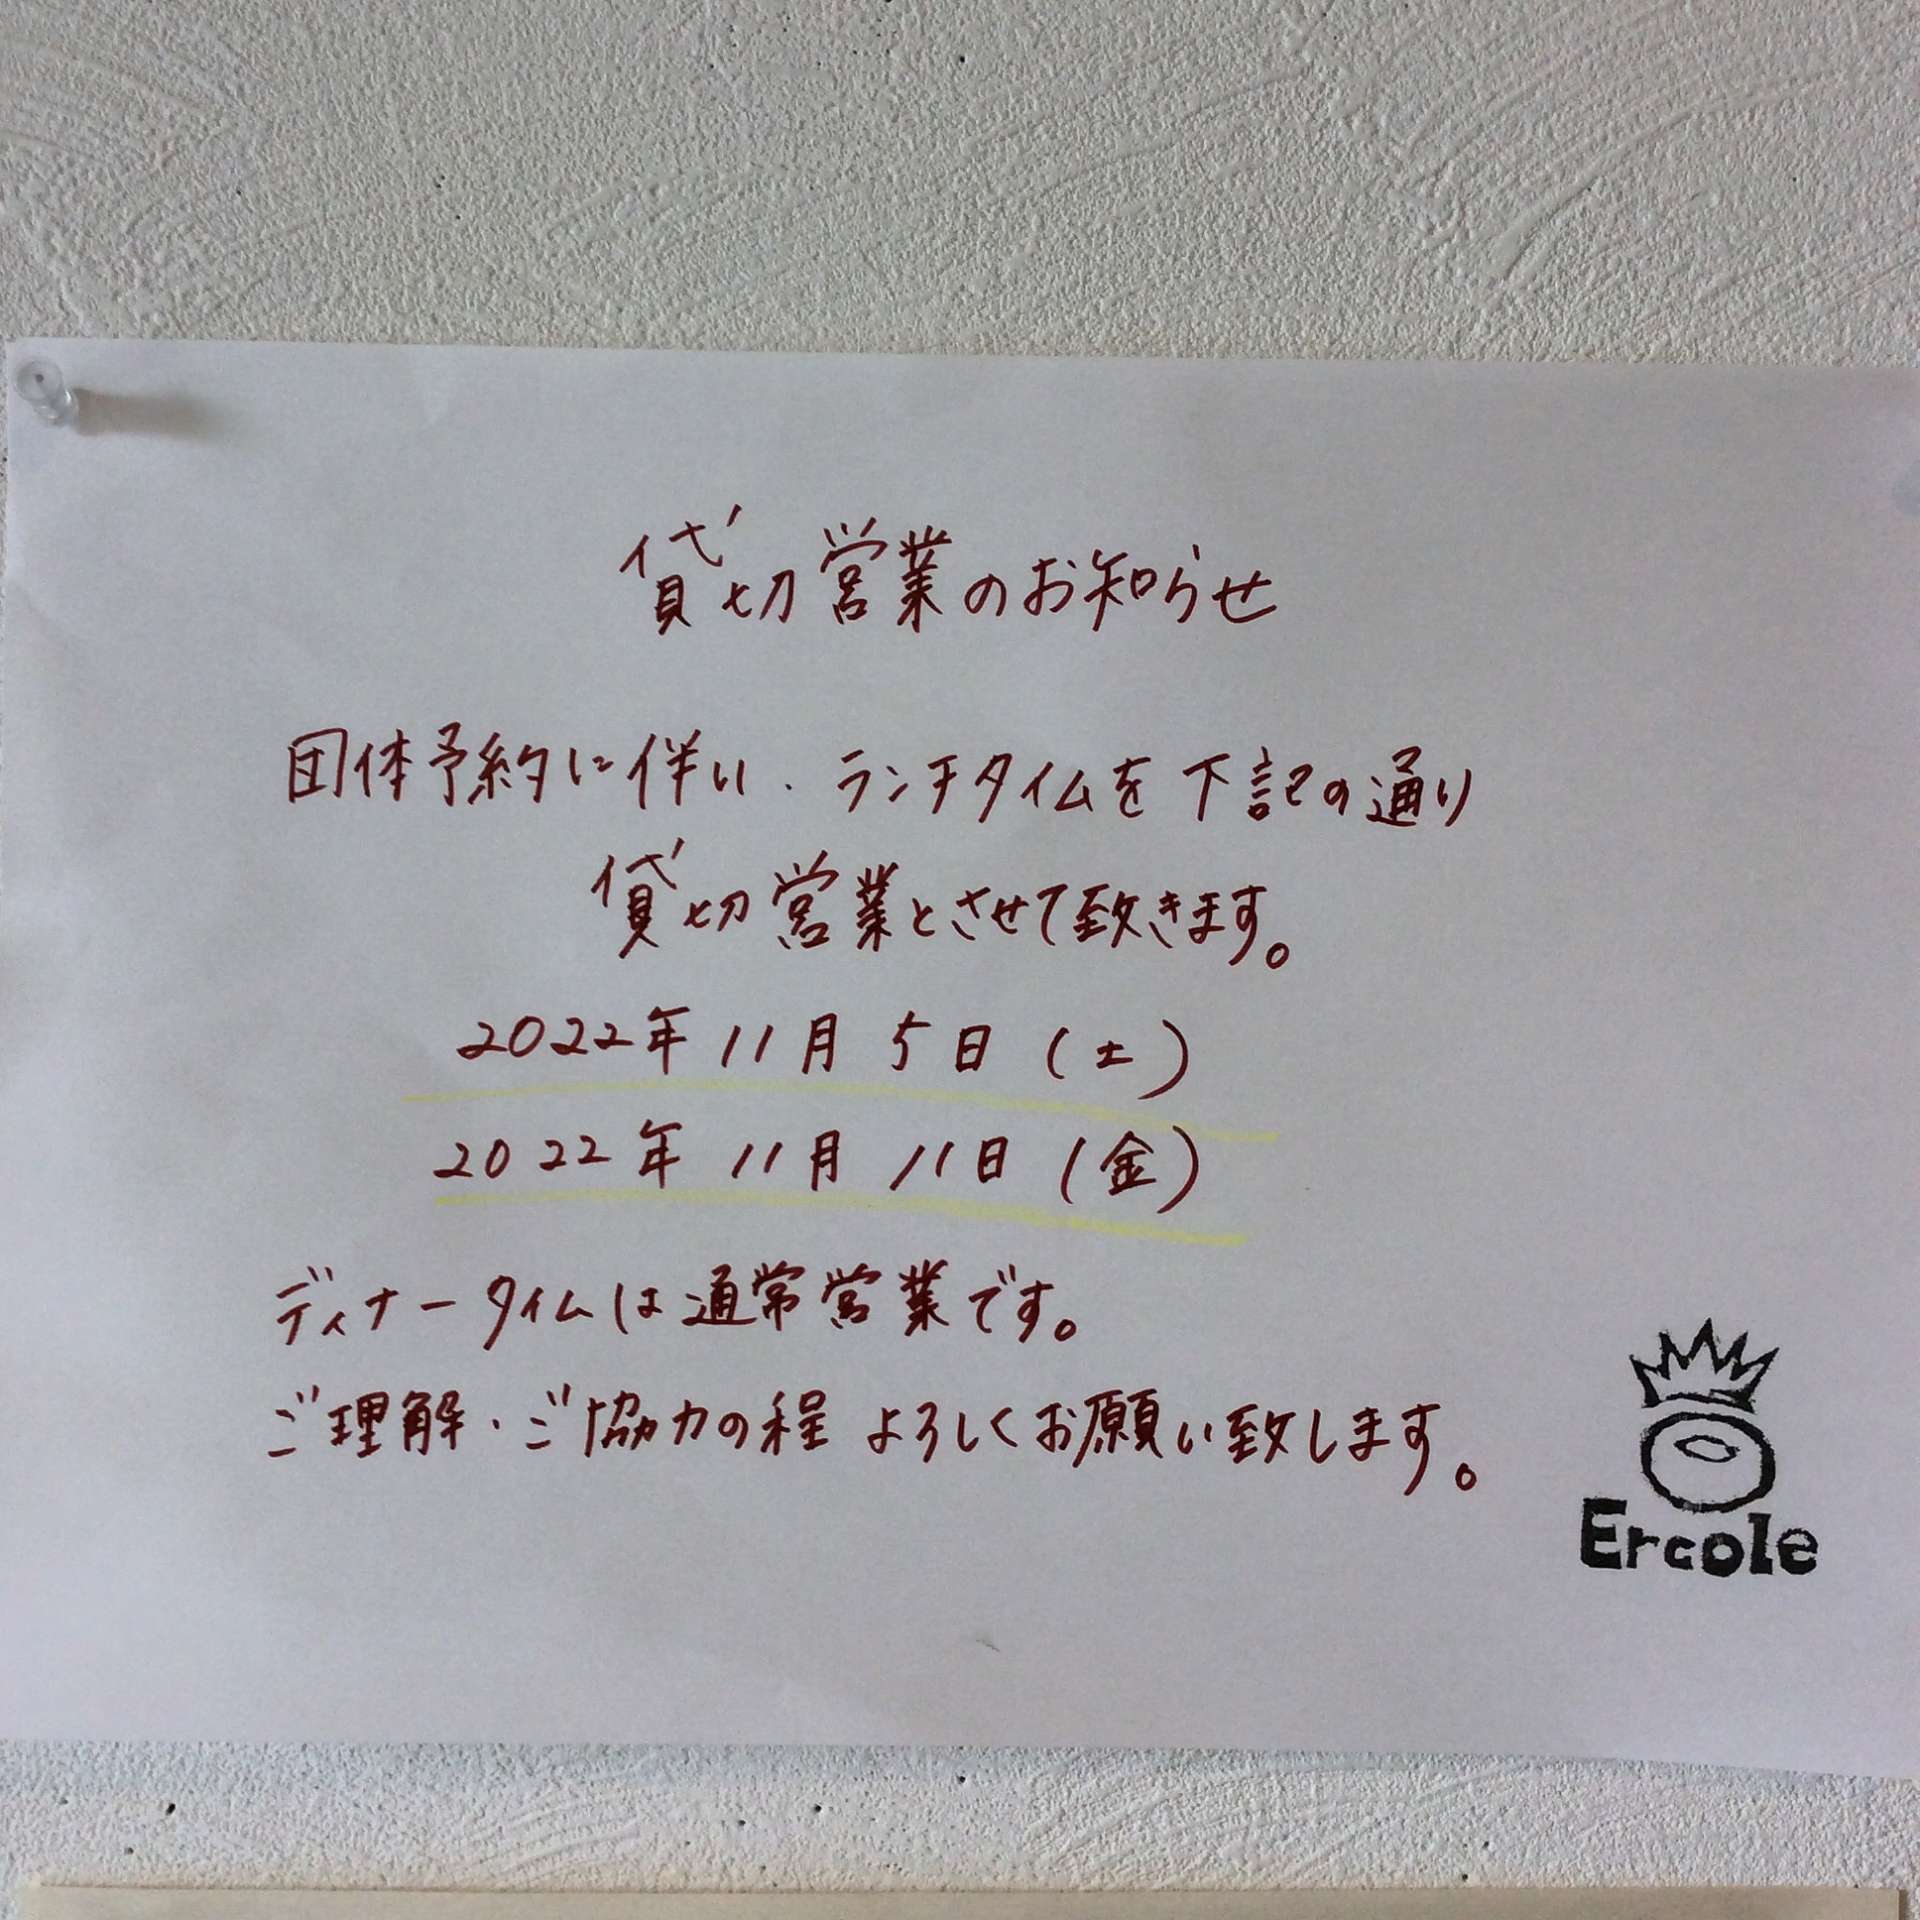 貸切営業のお知らせ
団体予約に伴い、ランチタイムを下記の通り
貸切営業とさせて致きます。
2022年11月5日(土)
2022年11月11日(金)
ディナータイムは通常営業です。
ご理解・ご協力の程 よろしくお願い致します。
Ercole